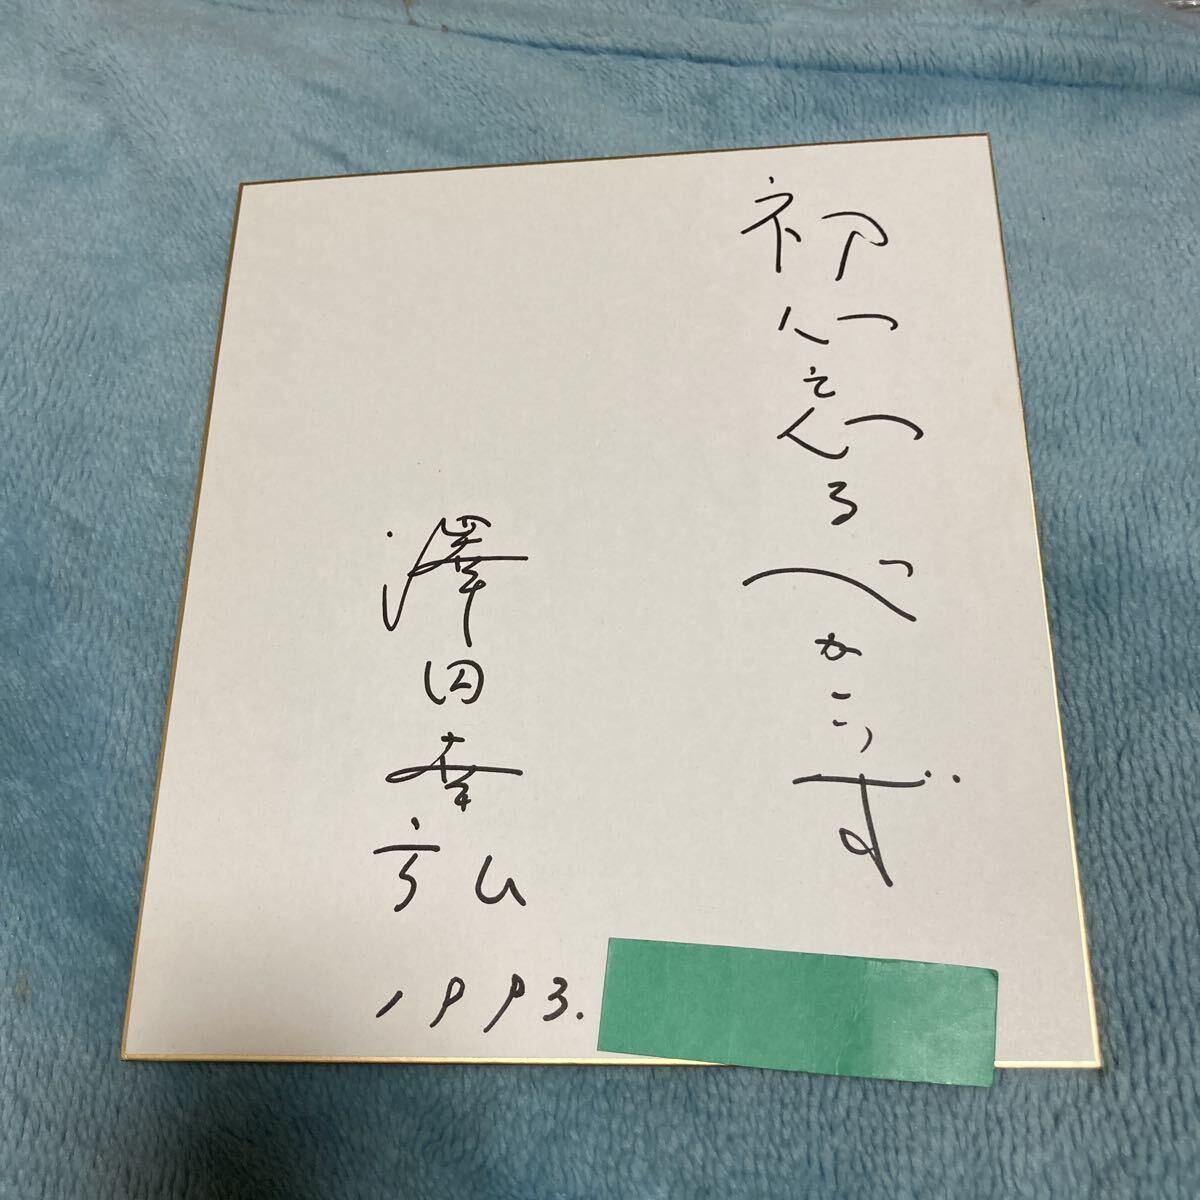 初心忘るべからず
澤田幸弘
1993.